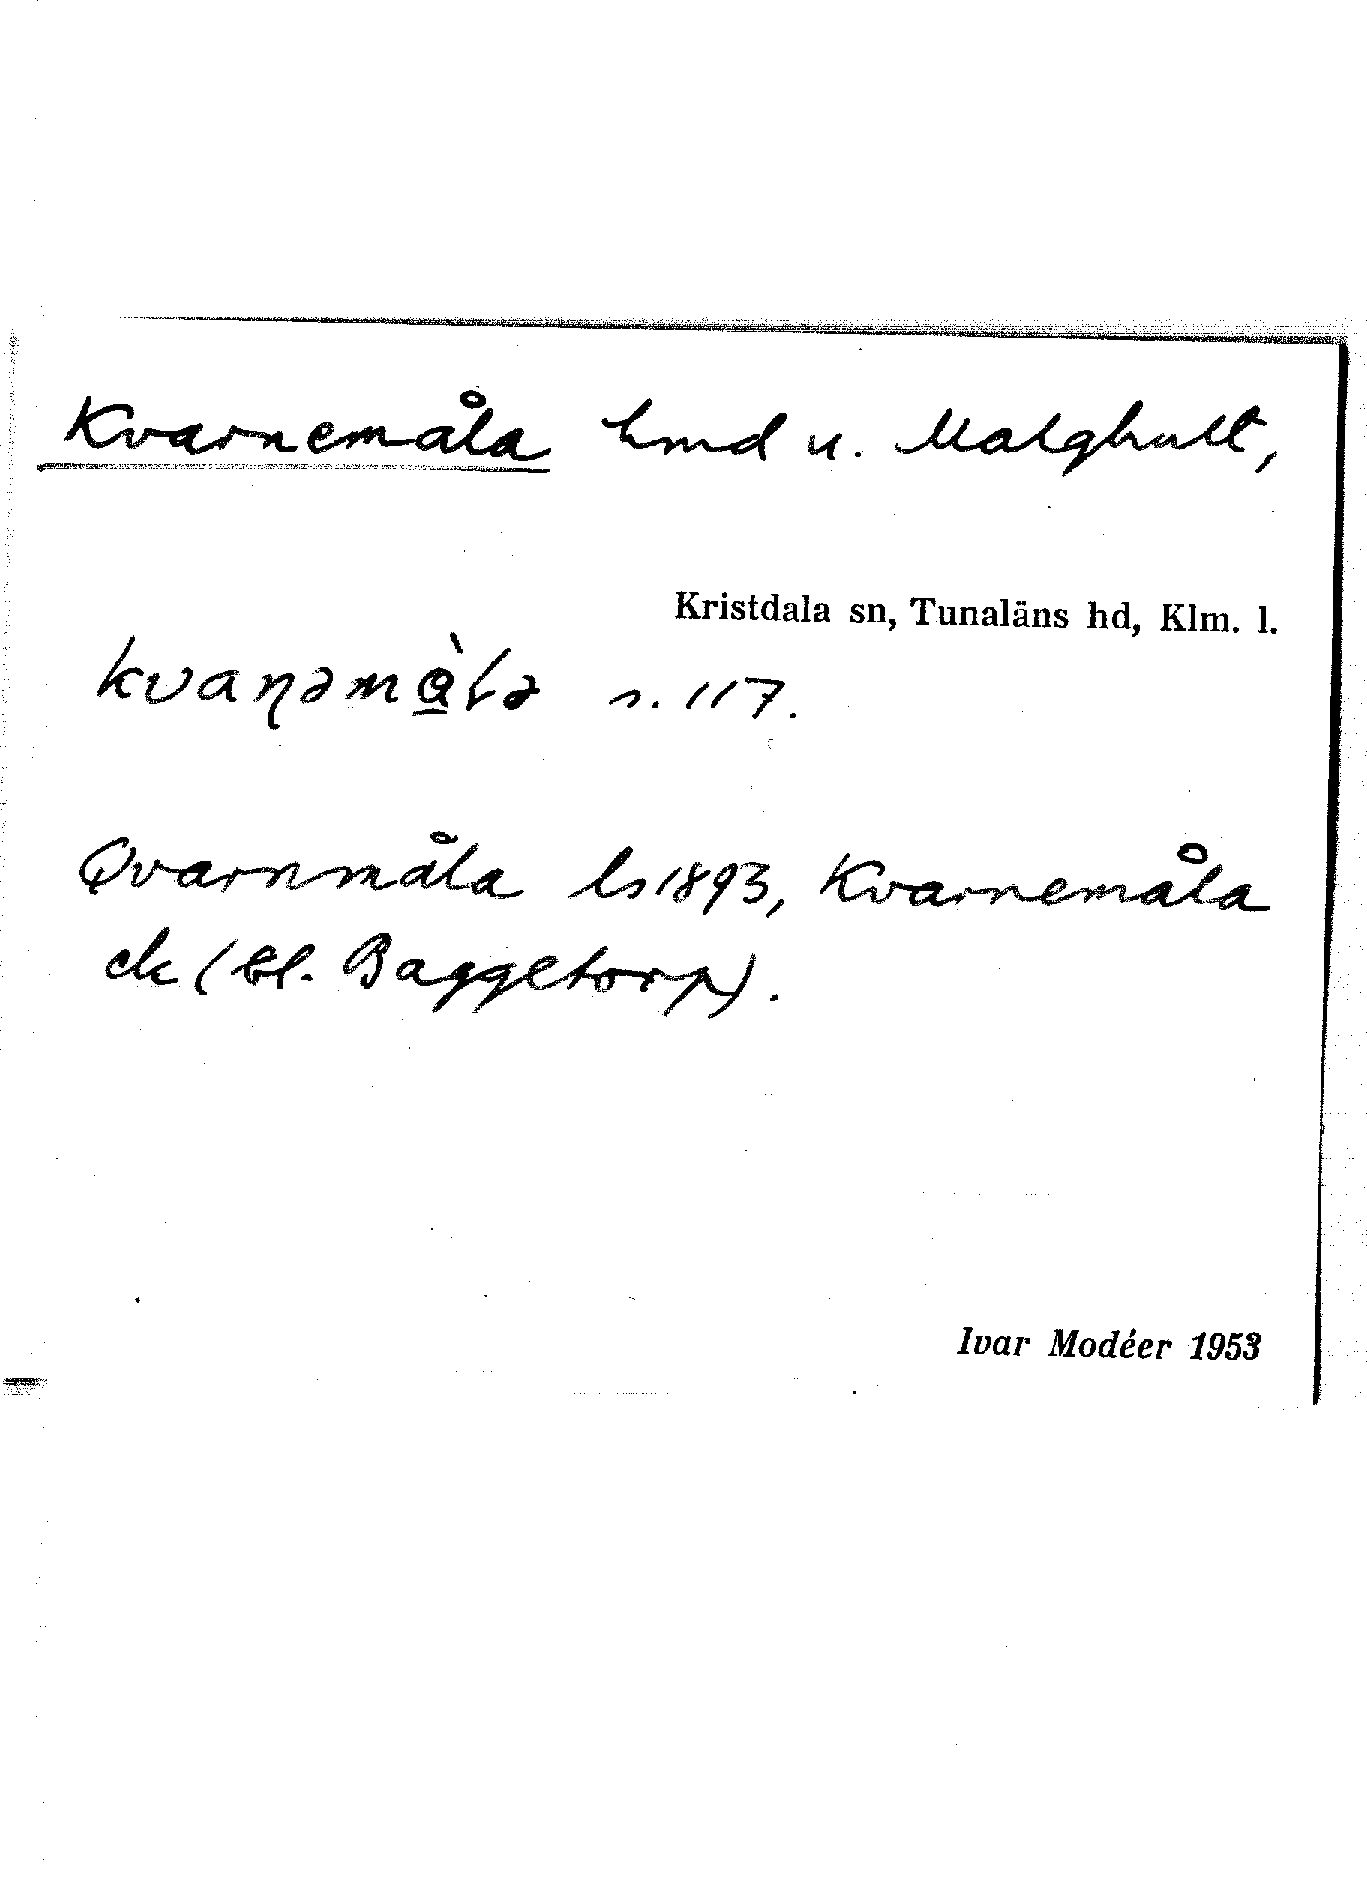 Kvarnemåla hmd u. Malghult,
Kristdala sn, Tunaläns hd, Klm. l.
kvaṇəmàlə s. 117.
Qvarnmåla ls 1893, Kvarnemåla
ek (bl. Baggetorp).
Ivar Modéer 1953